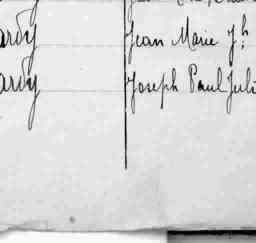 ardy Jean Marie Jh.
ardy Joseph Paul Juli